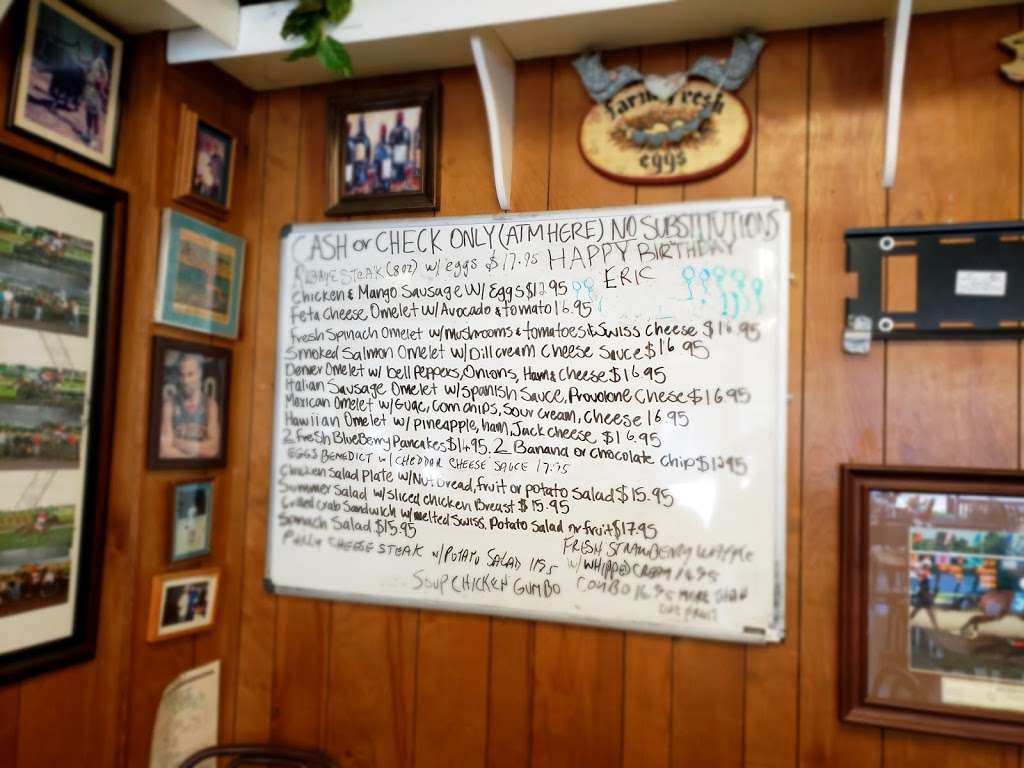 Farm Fresh
eggs
CASH or CHECK ONLY (ATM HERE) NO SUBSTITUTIONS
STEAK (8oz) w/ eggs $17.95 HAPPY BIRTHDAY
ERIC
Chicken & Mango Sausage W/ Eggs $12.95
Feta cheese Omelet w/ Avocado & tomato 16.95
Fresh Spinach Omelet w/ mushrooms & tomatoes & Swiss cheese $16.95
Smoked Salmon Omelet w/ Dill cream cheese Sauce $16.95
Denver Omelet w/ bell peppers, Onions, Ham & Cheese $16.95
Italian Sausage Omelet w/ Spanish Sauce, Provolone Chese $16.95
Mexican Omelet w/ Guac, Corn chips, Sour cream, cheese 16.95
Hawiian Omelet w/ pineapple, ham, Jack cheese $16.95
2 Fresh BlueBerry Pancakes $14.95, 2 Banana or chocolate chip $12.95
EGGS BENEDICT w/ CHEDDAR CHEESE SAUCE 17.95
Chicken Salad Plate w/ Nut Bread, fruit or potato salad $15.95
Summer Salad w/ Sliced chicken Breast $15.95
Grilled Crab Sandwich w/ melted Swiss, Potato Salad or fruit $17.95
Spinach Salad $15.95
PHILLY CHEESE STEAK w/ POTATO SALAD
FRESH STRAWBERRY WAFFLE
W/ WHIPPED CREAM 16.95
SOUP CHICKEN GUMBO
COMBO 16.95